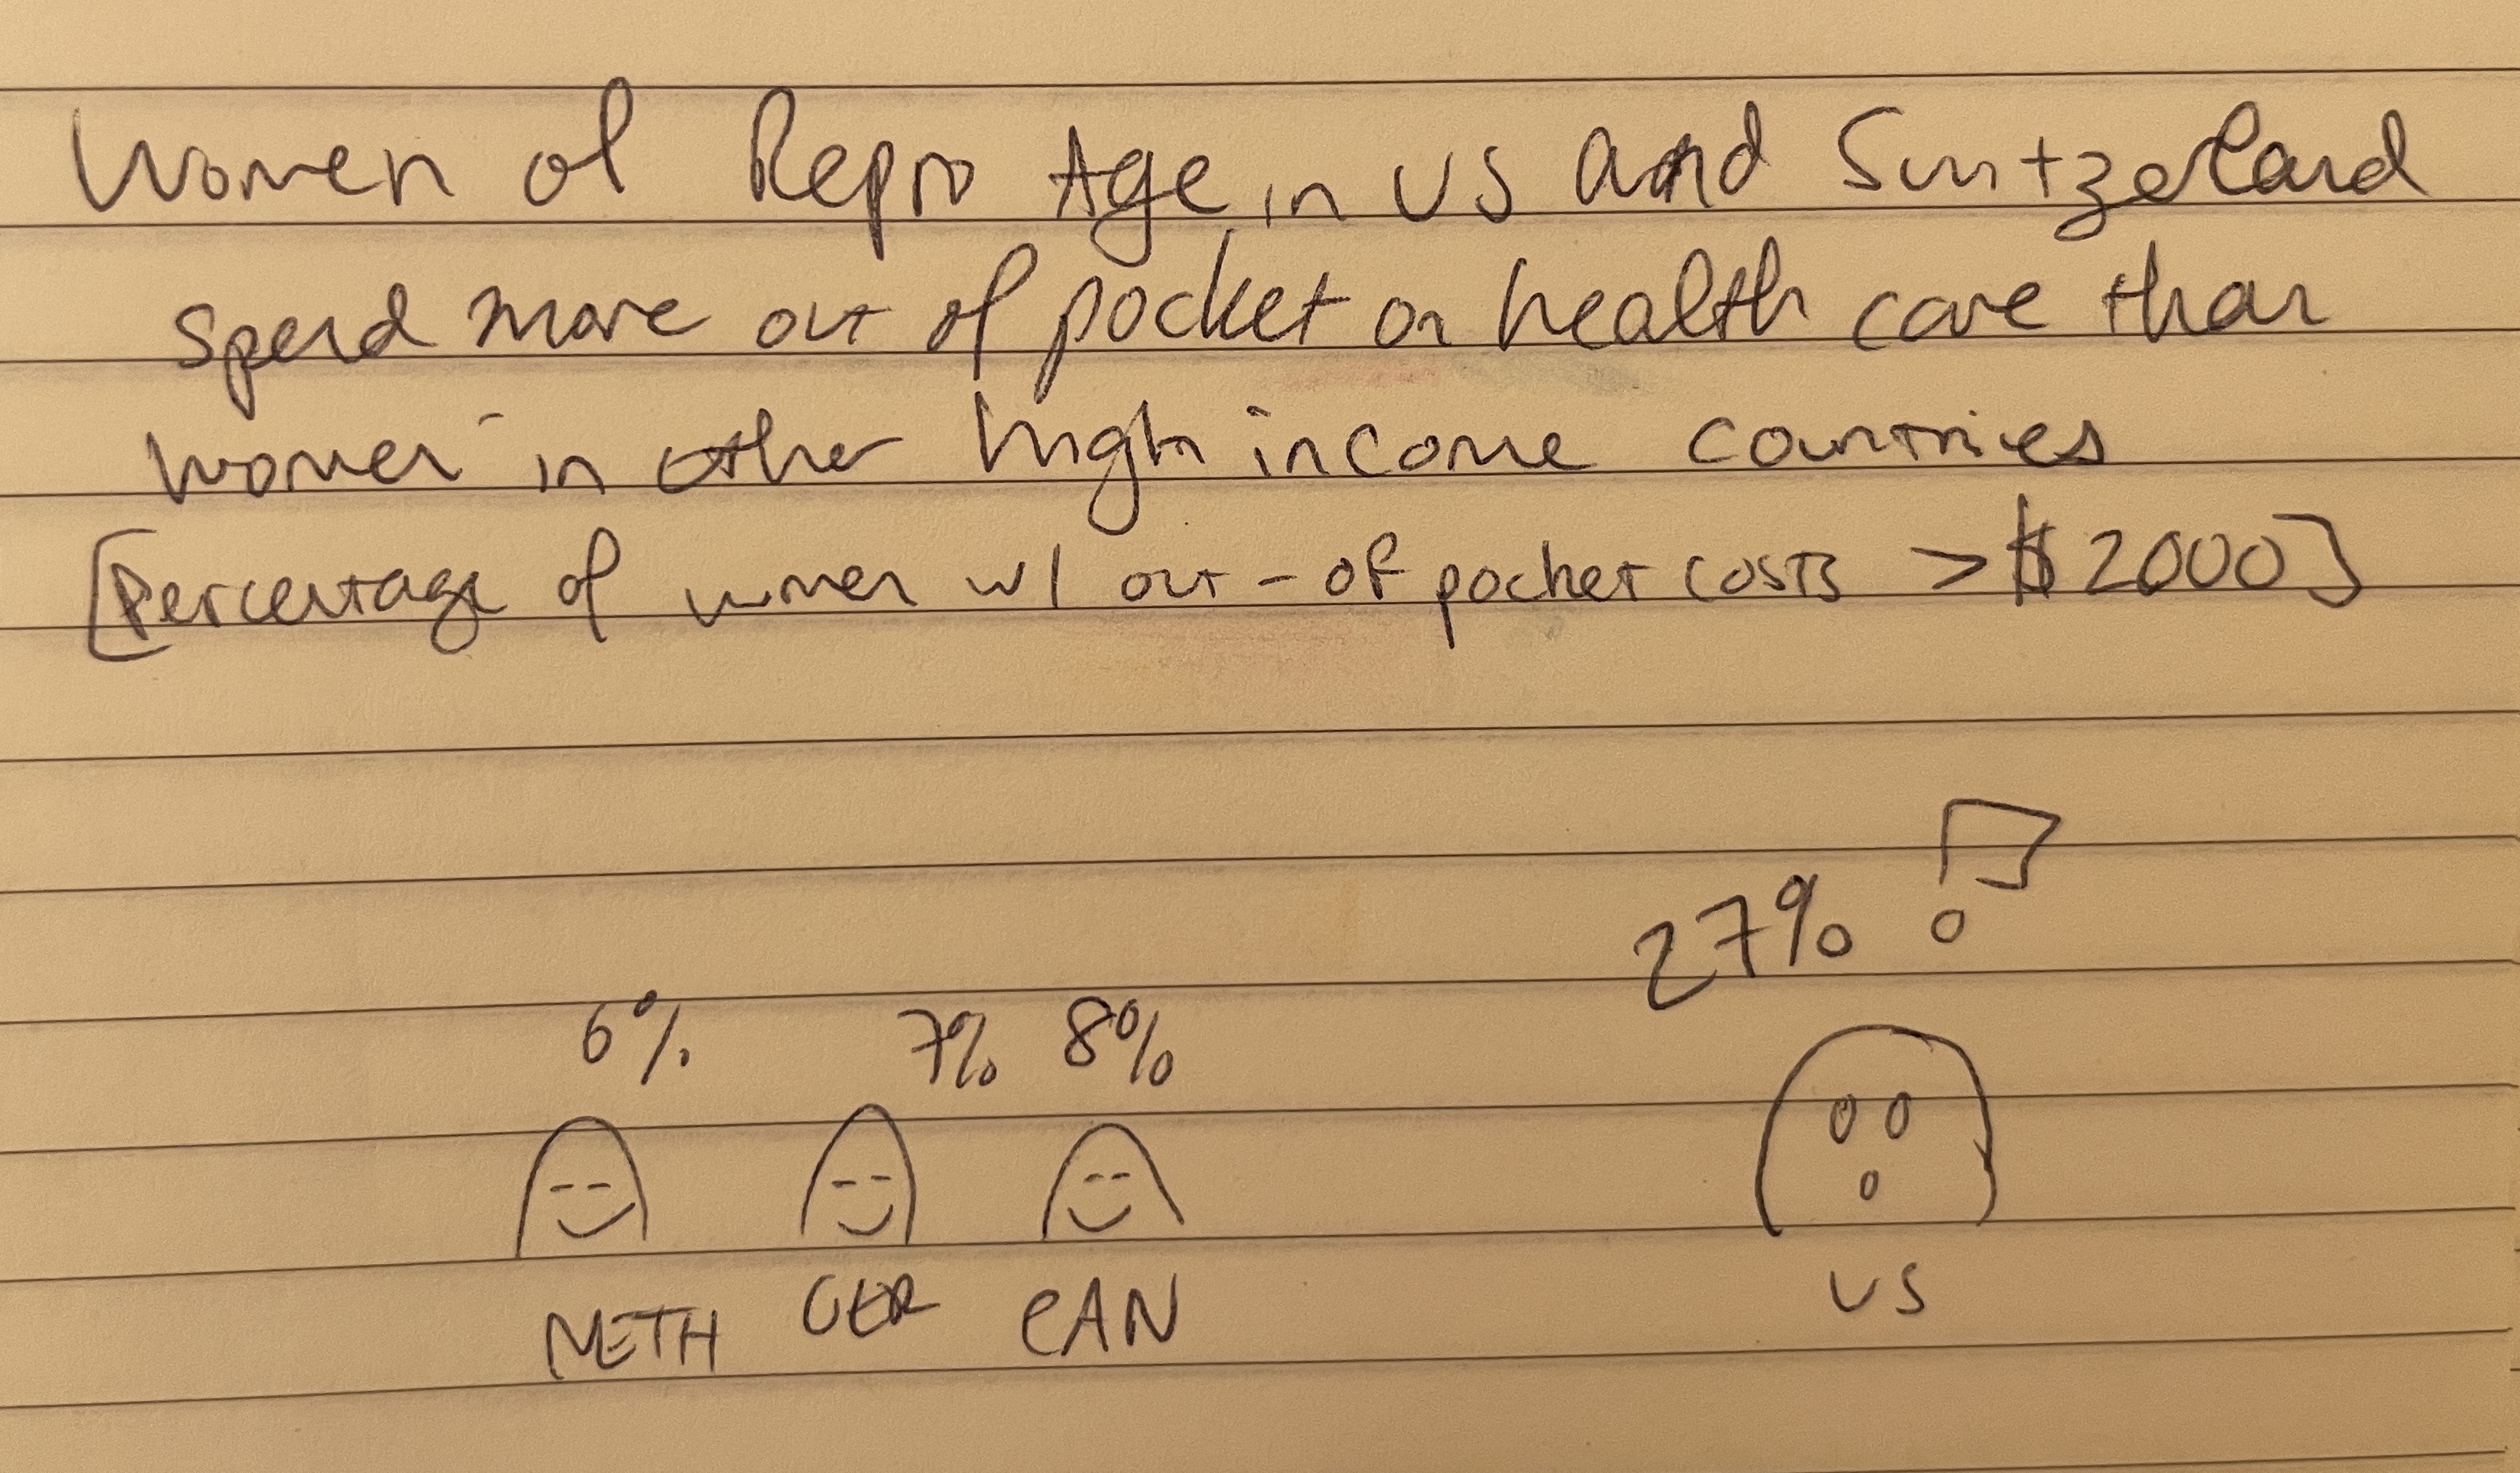 Women of Repro Age in US and Switzerland
spend more out of pocket on health care than
women in other high income countries
[Percentage of women w/ out-of pocket costs > $2000]
27% ?
6% 7% 8%
NETH GER CAN US